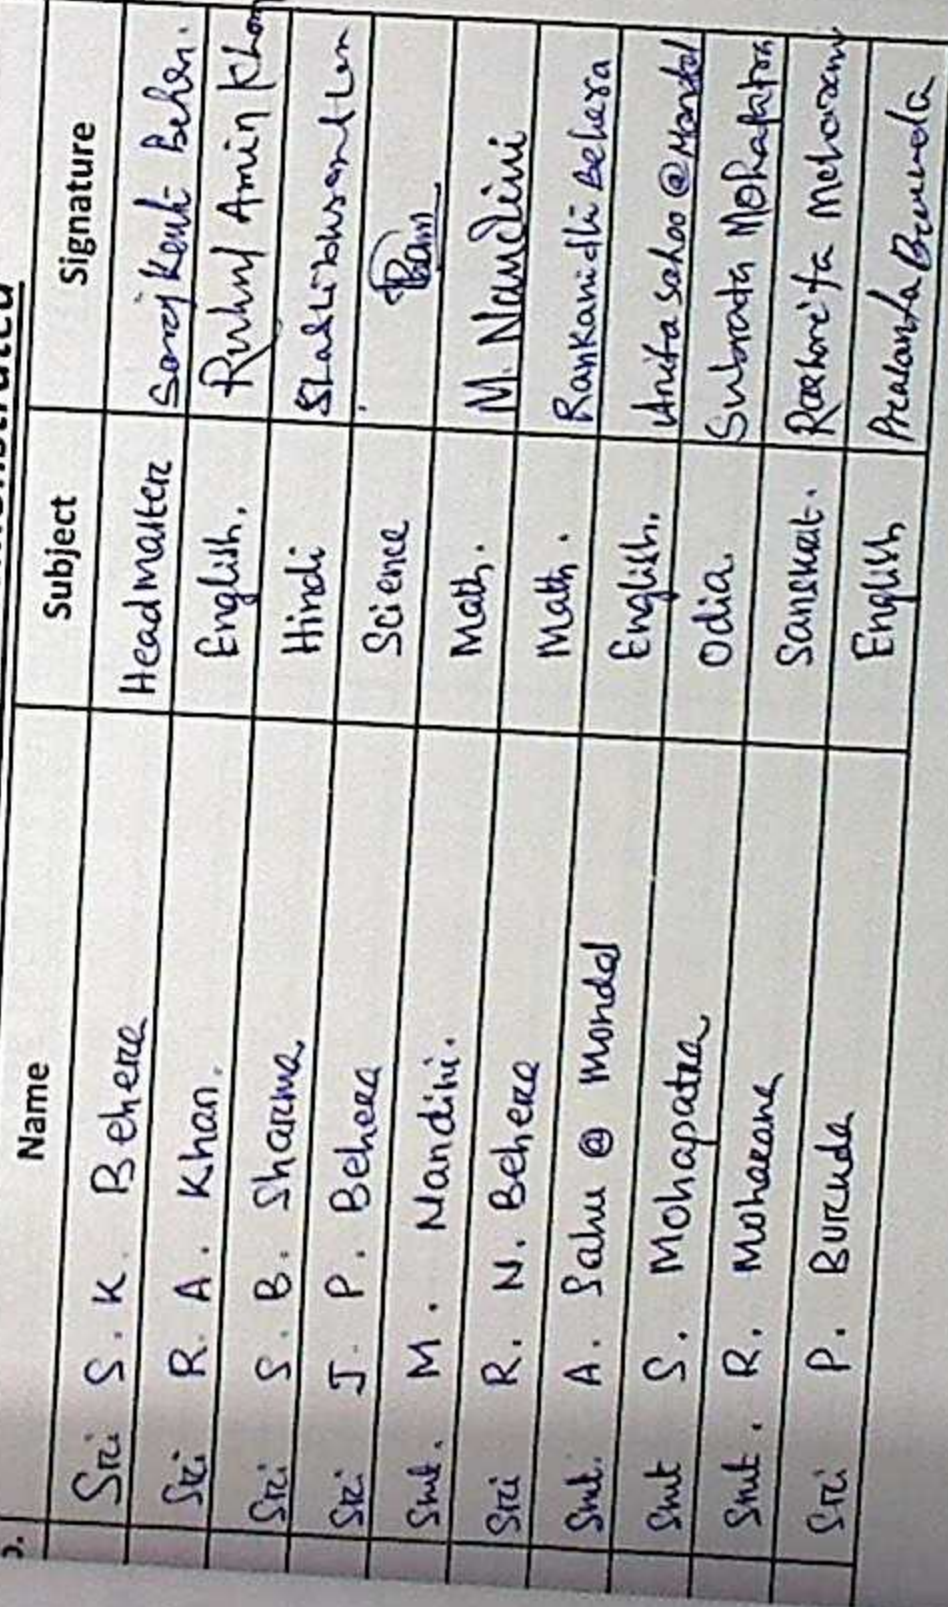 Name Subject Signature
Sri S. K. Behera Headmaster
Sri R. A. Khan. English. Ruhul Amin Khan
Sri S. B. Sharma Hindi
Sri J. P. Behera Science
Smt. M. Nandini. Math. M. Nandini
Sri R. N. Behera Math. Rankanidhi Behera
Smt. A. Sahu @ Mondal English. Anita Sahoo @ Mondal
Smt S. Mohapatra Odia Subrata Mohapatra
Smt. R. Moharana Sanskrit.
Sri P. Buruda English